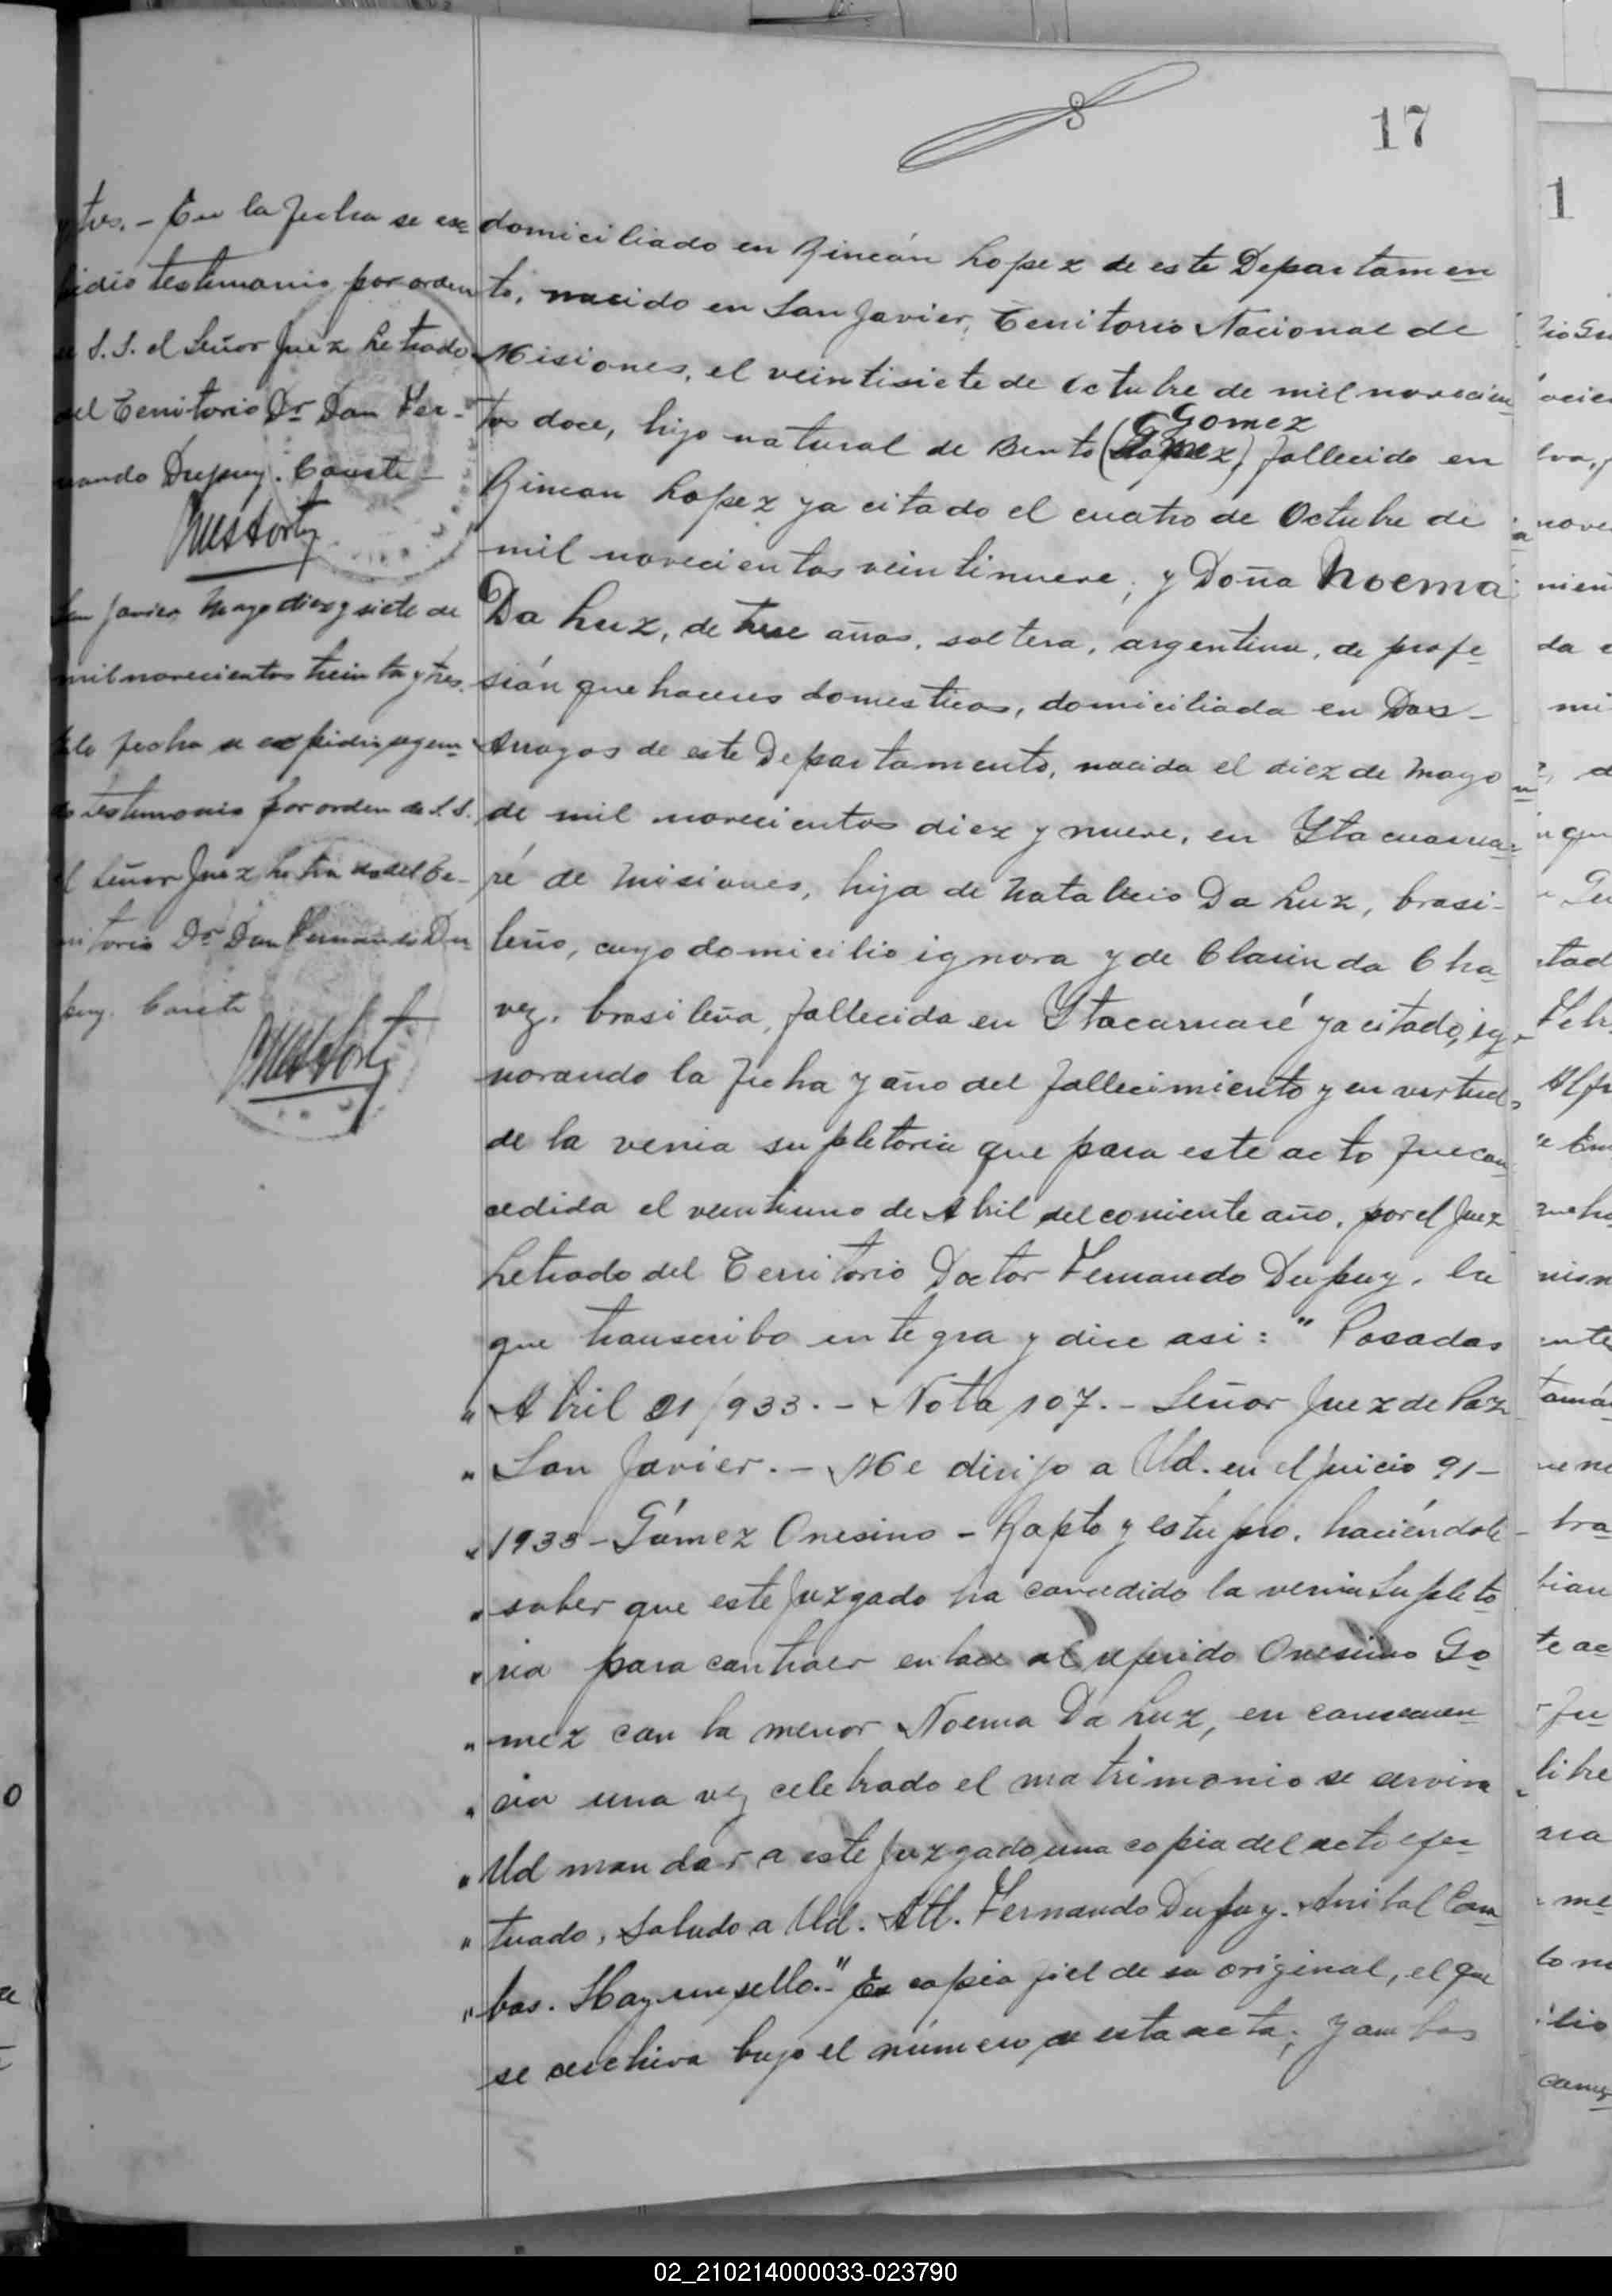 17
tos.- En la fecha se ex-
pidió testimonio por orden
de S.S. el Señor Juez Letrado
del Territorio Dr. Don Fer-
nando Dupuy. Conste-
San Javier, Mayo diez y siete de
mil novecientos treinta y tres.
En la fecha se expidió segun-
do testimonio por orden de S.S.
el Señor Juez Letrado del Te-
rritorio Dr. Don Fernando Du
puy. Conste
domiciliado en Rincón Lopez de este Departamen
to, nacido en San Javier, Territorio Nacional de
Misiones, el veintisiete de Octubre de mil novecien
tos doce, hijo natural de Bento (Gomez
), fallecido en
Rincon Lopez ya citado el cuatro de Octubre de
mil novecientos veintinueve; y Doña Noema
Da Luz, de trece años, soltera, argentina, de profe
sión quehaceres domesticos, domiciliada en Dos-
Arroyos de este Departamento, nacida el diez de Mayo
de mil novecientos diez y nueve, en Ytacuarua-
ré de Misiones, hija de Natalicio Da Luz, brasi-
leño, cuyo domicilio ignora y de Clarinda Cha
vez, brasileña, fallecida en Ytacaruaré ya citado, ig-
norando la fecha y año del fallecimiento y en virtud
de la venia supletoria que para este acto fue con
cedida el veintiuno de Abril del corriente año, por el Juez
Letrado del Territorio Doctor Fernando Dupuy, la
que transcribo integra y dice asi: " Posadas
" Abril 21/933.- Nota 107.- Señor Juez de Paz
" San Javier.- Me dirijo a Ud. en el juicio 91-
" 1933- Gómez Onesino - Rapto y estupro, haciéndole
" saber que este Juzgado ha concedido la venia supleto
" ria para contraer enlace al referido Onesino Go
" mez con la menor Noema Da Luz, en consecuen
" cia una vez celebrado el matrimonio se servira
" Ud mandar a este Juzgado una copia del acto efec
" tuado, Saludo a Ud. Att. Fernando Dupuy. Anibal Com
" bas. Hay un sello." Es copia fiel de su original, el que
se archiva bajo el número de esta acta; y ambos
02_210214000033-023790